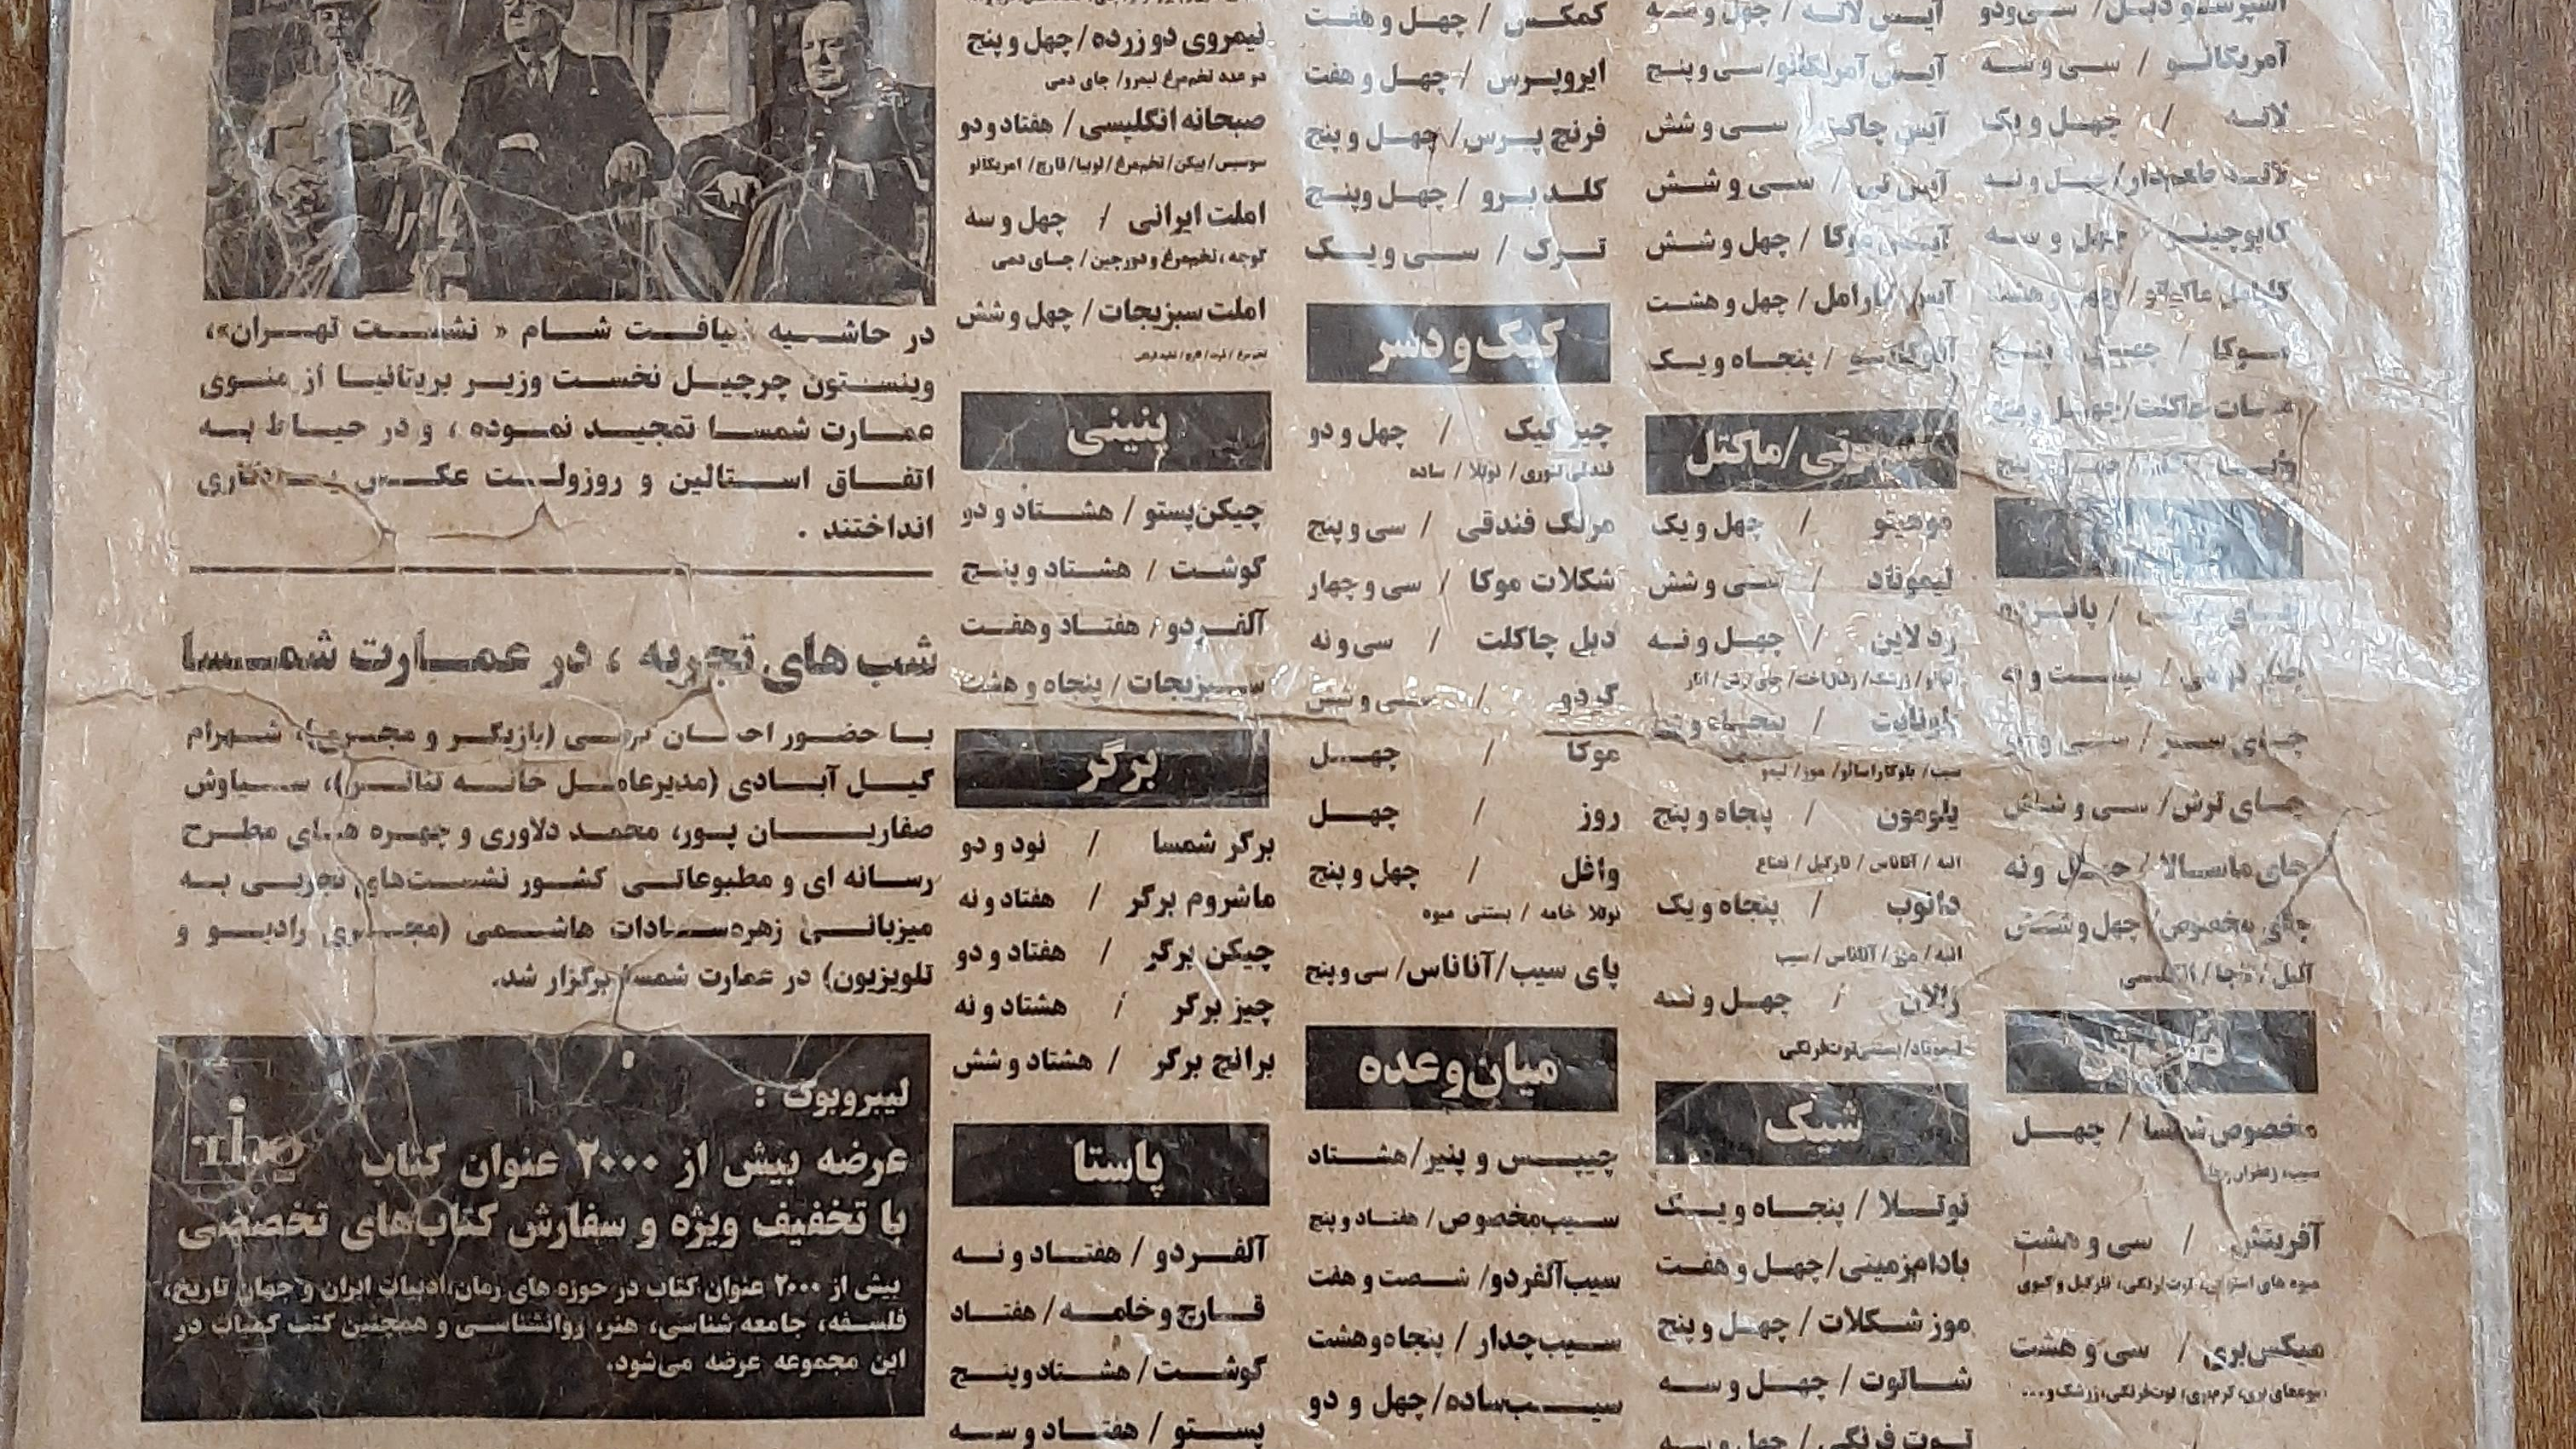 اسپرسو دبل / سی‌ودو
آمریکانو / سی و سه
لاته / چهل و یک
لاته طعم‌دار / چهل و نه
کاپوچینو / چهل و سه
کارامل ماکیاتو / چهل و هشت
موکا / چهل و پنج
هات چاکلت / چهل و پنج
چای سبز / سی و
چای ترش / سی و شش
چای ماسالا / چهل و نه
چای مخصوص / چهل و شش
مخصوص شمسا / چهل
آفرینش / سی و هشت
میکس‌بری / سی و هشت
آیس لاته / چهل و سه
آیس آمریکانو / سی و پنج
آیس چاکلت / سی و شش
آیس تی / سی و شش
آیس موکا / چهل و شش
آیس کارامل / چهل و هشت
آفوگاتو / پنجاه و یک
اسموتی/ماکتل
موهیتو / چهل و یک
لیموناد / سی و شش
رد لاین / چهل و نه
یلومون / پنجاه و پنج
انبه / آناناس / نارگیل / نعناع
دانوب / پنجاه و یک
انبه / موز / آناناس / سیب
ژلان / چهل و سه
لیموناد/بستنی‌توت‌فرنگی
شیک
نوتلا / پنجاه و یک
بادام‌زمینی / چهل و هفت
موز شکلات / چهل و پنج
شاتوت / چهل و سه
توت فرنگی / چهل و سه
کمکس / چهل و هفت
ایروپرس / چهل و هفت
فرنچ پرس / چهل و پنج
کلد برو / چهل و پنج
ترک / سی و یک
کیک و دسر
چیز کیک / چهل و دو
فندقی لوزی / نوتلا / ساده
مرنگ فندقی / سی و پنج
شکلات موکا / سی و چهار
دبل چاکلت / سی و نه
گردو / سی و شش
موکا / چهل
روز / چهل
وافل / چهل و پنج
نوتلا خامه / بستنی میوه
پای سیب/آناناس / سی و پنج
میان‌وعده
چیپس و پنیر / هشتاد
سیب‌مخصوص / هفتاد و پنج
سیب‌آلفردو / شصت و هفت
سیب‌چدار / پنجاه‌وهشت
سیب‌ساده / چهل و دو
نیمروی دو زرده / چهل و پنج
دو عدد تخم‌مرغ نیمرو/ چای دمی
صبحانه انگلیسی / هفتاد و دو
سوسیس/بیکن/تخم‌مرغ/لوبیا/قارچ/آمریکانو
املت ایرانی / چهل و سه
گوجه، تخم‌مرغ و دورچین / چای دمی
املت سبزیجات / چهل و شش
پنینی
چیکن‌پستو / هشتاد و دو
گوشت / هشتاد و پنج
آلفردو / هفتاد و هفت
سبزیجات / پنجاه و هشت
برگر
برگر شمسا / نود و دو
ماشروم برگر / هفتاد و نه
چیکن برگر / هفتاد و دو
چیز برگر / هشتاد و نه
برانچ برگر / هشتاد و شش
پاستا
آلفردو / هفتاد و نه
قارچ و خامه / هفتاد
گوشت / هشتاد و پنج
پستو / هفتاد و سه
در حاشیه ضیافت شام « نشست تهران»،
وینستون چرچیل نخست وزیر بریتانیا از منوی
عمارت شمسا تمجید نموده ، و در حیاط به
اتفاق استالین و روزولت عکس یادگاری
انداختند .
شب های تجربه ، در عمارت شمسا
با حضور احسان کرمی (بازیگر و مجری)، شهرام
گیل آبادی (مدیرعامل خانه تئاتر)، سیاوش
صفاریان پور، محمد دلاوری و چهره های مطرح
رسانه ای و مطبوعاتی کشور نشست‌های تجربی به
میزبانی زهره‌سادات هاشمی (مجری رادیو و
تلویزیون) در عمارت شمسا برگزار شد.
لیبروبوک :
عرضه بیش از ۲۰۰۰ عنوان کتاب
با تخفیف ویژه و سفارش کتاب‌های تخصصی
بیش از ۲۰۰۰ عنوان کتاب در حوزه های رمان،ادبیات ایران و جهان تاریخ،
فلسفه، جامعه شناسی، هنر، روانشناسی و همچنین کتب کمیاب در
این مجموعه عرضه می‌شود.